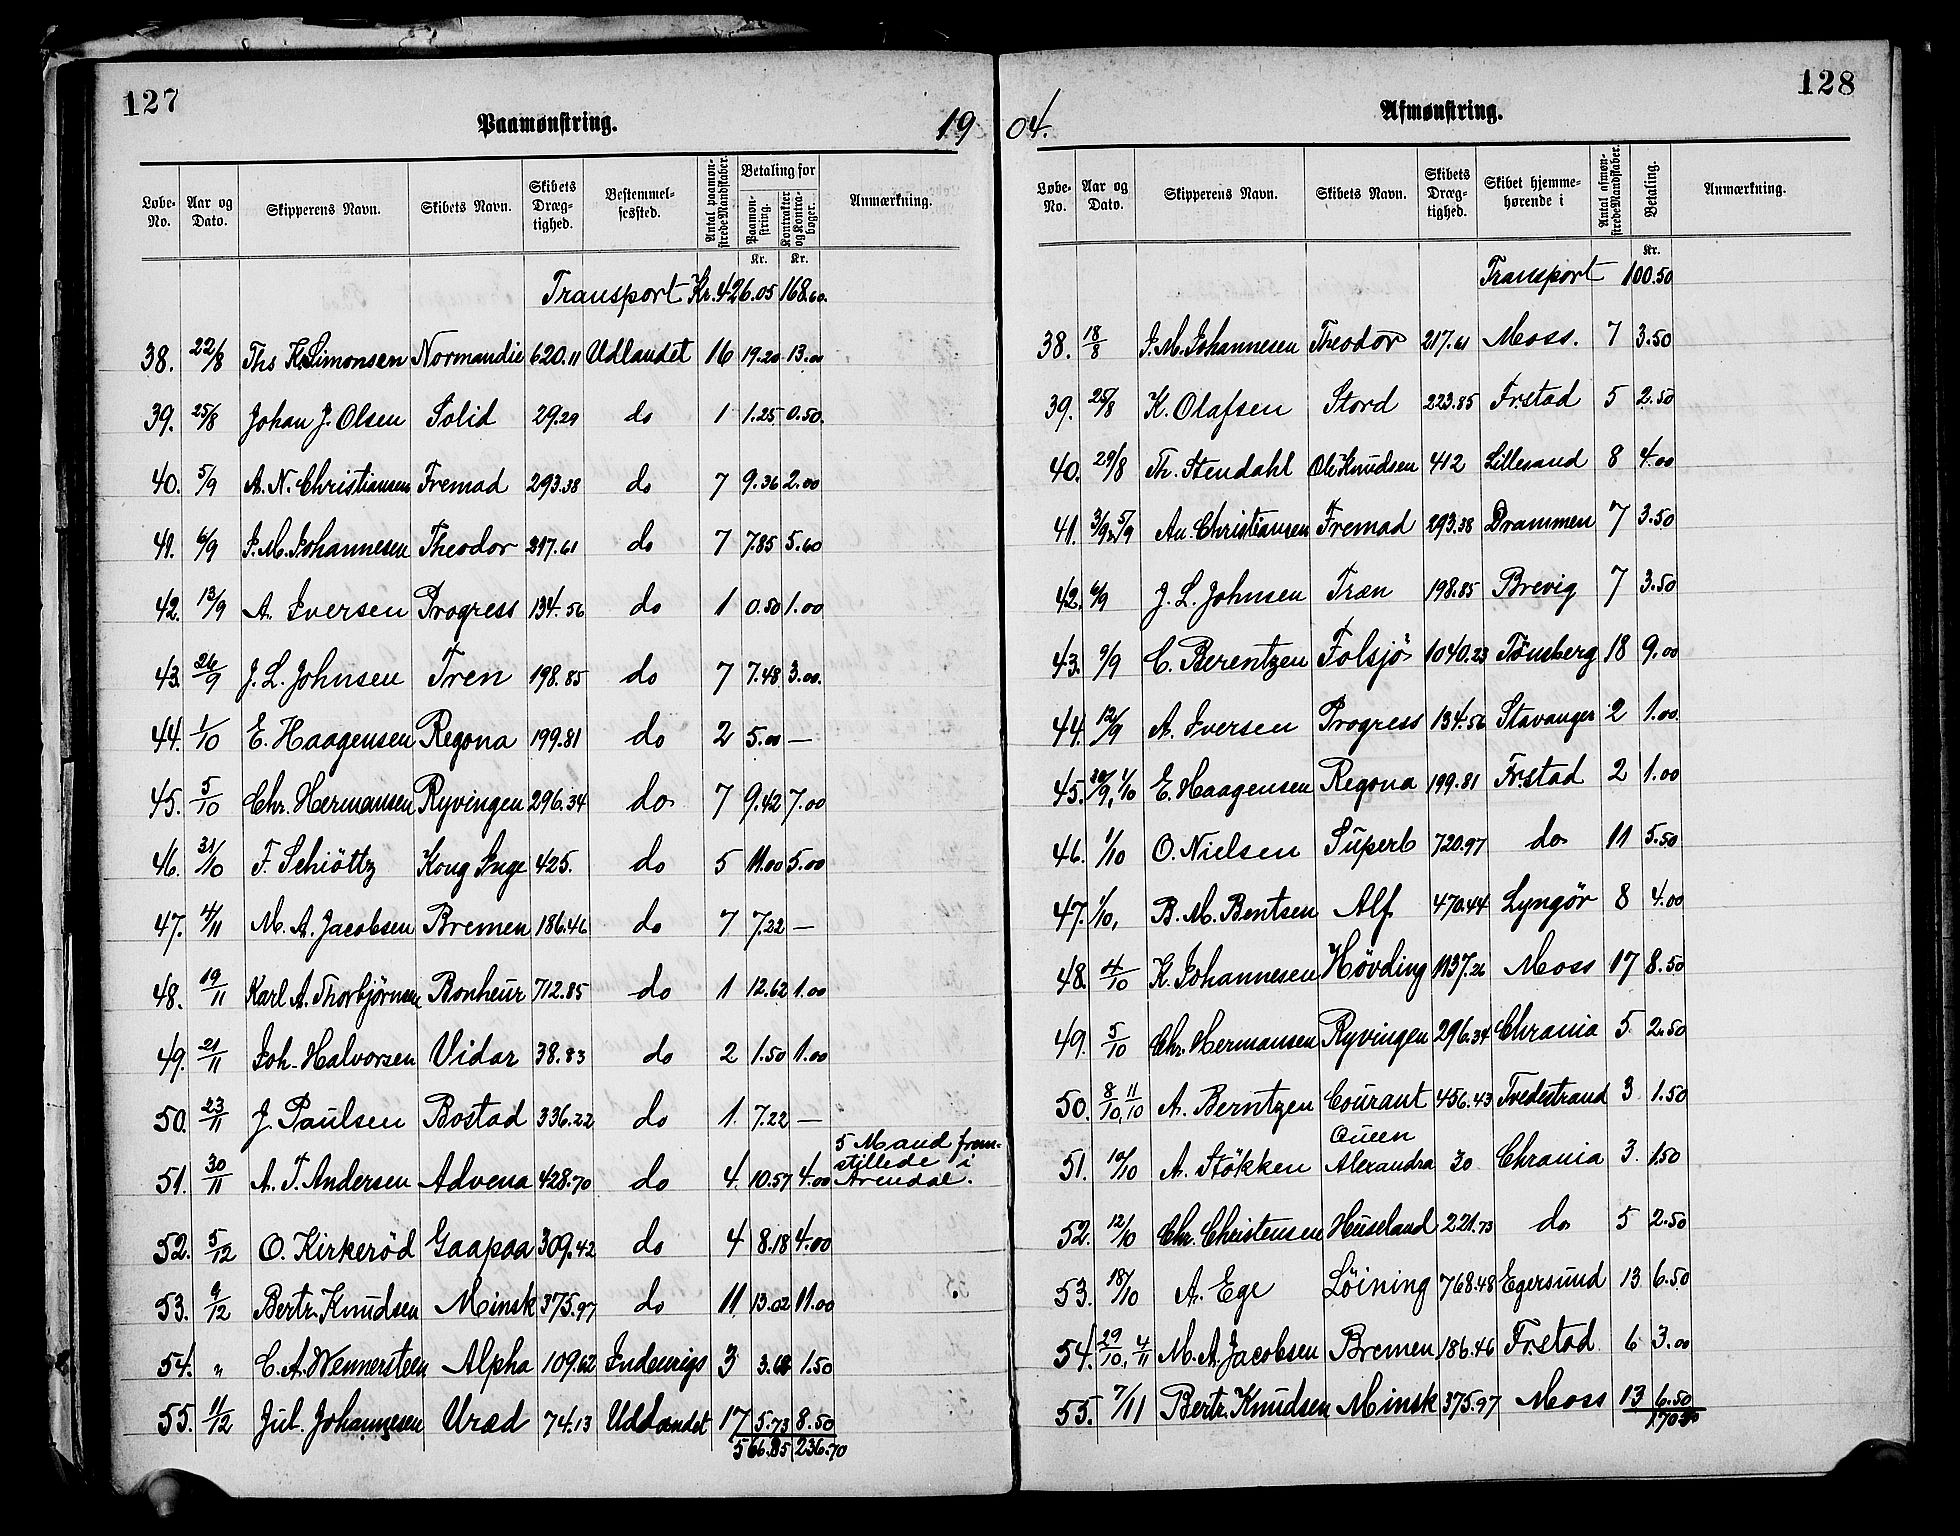 127
Paamønstring.
19
Løbe-No. | Aar og Dato. | Skipperens Navn. | Skibets Navn. | Skibets Dræg-tighed. | Bestemmel-sessted. | Antal paamøn-strede Mandskaber. | Betaling for Paamøn-string. | Kontrakter og Kontra-bøger. | Anmærkning.
Kr. Kr.
Transport Kr. 426.05 168.60.
38. 22/8 Ths K. Simonsen Normandie 620.11 Udlandet 16 19.20 13.00
39. 25/8 Johan J. Olsen Solid 29.29 do 1 1.25 0.50.
40. 5/9 A. N. Christiansen Fremad 293.38 do 7 9.36 2.00
41. 6/9 J. M. Johannesen Theodor 217.61 do 7 7.85 5.60
42. 13/9 A. Iversen Progress 134.56 do 1 0.50 1.00
43. 26/9 J. L. Johnsen Tren 198.85 do 7 7.48 3.00.
44. 1/10 E. Haagensen Regona 199.81 do 2 5.00 —
45. 5/10 Chr. Hermansen Ryvingen 296.34 do 7 9.42 7.00
46. 31/10 F. Schiöttz Kong Inge 425. do 5 11.00 5.00
47. 4/11 M. A. Jacobsen Bremen 186.46 do 7 7.22 —
48. 19/11 Karl A. Thorbjørnsen Bonheur 712.85 do 1 12.62 1.00
49. 21/11 Joh. Halvorsen Vidar 38.83 do 2 1.50 1.00
50. 23/11 J. Paulsen Bostad 336.22 do 1. 7.22 —
51. 30/11 A. T. Andersen Advena 428.70 do 4. 10.57 4.00 5 Mand frem-
stillede i
Arendal.
52. 5/12 O. Kirkerød Gaapaa 309.42 do 4 8.18 4.00
53. 9/12 Bertr. Knudsen Minsk 375.97 do 11 13.02 11.00
54. " C. A. Wennersteen Alpha 109.62 Indenrigs 3 3.68 1.50
55. 11/12 Jul. Johannesen Uræd 74.13 Udlandet 17 5.73 8.50
566.85 236.70
128
Afmønstring.
04.
Løbe-No. | Aar og Dato. | Skipperens Navn. | Skibets Navn. | Skibets Dræg-tighed. | Skibet hjemme-hørende i | Antal afmøn-strede Mandskaber. | Betaling. | Anmærkning.
Kr.
Transport 100.50
38. 18/8 J. M. Johannesen Theodor 217.61 Moss. 7 3.50
39. 25/8 K. Olafsen Stord 223.85 Fr.stad 5 2.50
40. 29/8 Th. Stendahl Ole Knudsen 412 Lillesand 8 4.00
41. 3/9, 5/9 An. Christiansen Fremad 293.38 Drammen 7 3.50
42. 6/9 J. L. Johnsen Træn 198.85 Brevig 7 3.50
43. 9/9 C. Berentzen Folsjö 1040.23 Tönsberg 18 9.00
44. 12/9 A. Iversen Progress 134.56 Stavanger 2 1.00
45. 30/9, 1/10 E. Haagensen Regona 199.81 Fr.stad 2 1.00
46. 1/10 O. Nielsen Superb 720.97 do 11 5.50
47. 1/10, B. M. Bentsen Alf 470.44 Lyngör 8 4.00
48. 4/10 K. Johannesen Hövding 1137.26 Moss 17 8.50
49. 5/10 Chr. Hermansen Ryvingen 296.34 Chrania 5 2.50
50. 8/10, 11/10 A. Berntzen Courant 456.43 Tvedestrand 3 1.50
51. 10/10 A. Stökken Queen Alexandra 30 Chrania 3. 1.50
52. 12/10 Chr. Christensen Huseland 221.73 do 5 2.50
53. 18/10 A. Ege Löining 768.48 Egersund 13 6.50
54. 29/10, 4/11 M. A. Jacobsen Bremen 186.46 Fr.stad 6 3.00
55. 7/11 Bertr. Knudsen Minsk 375.97 Moss 13 6.50